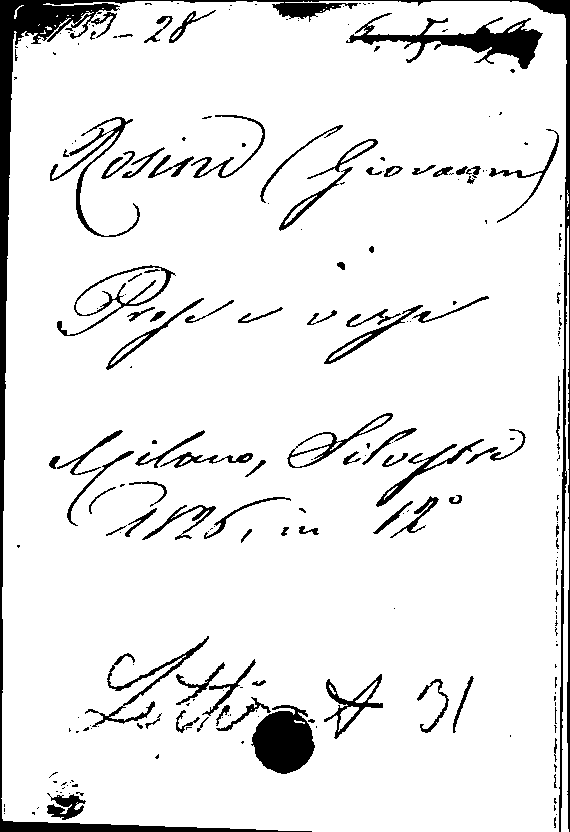 133-28
Rosini (Giovanni)
Prose e versi
Milano, Silvestri
1826, in 12°
A 31